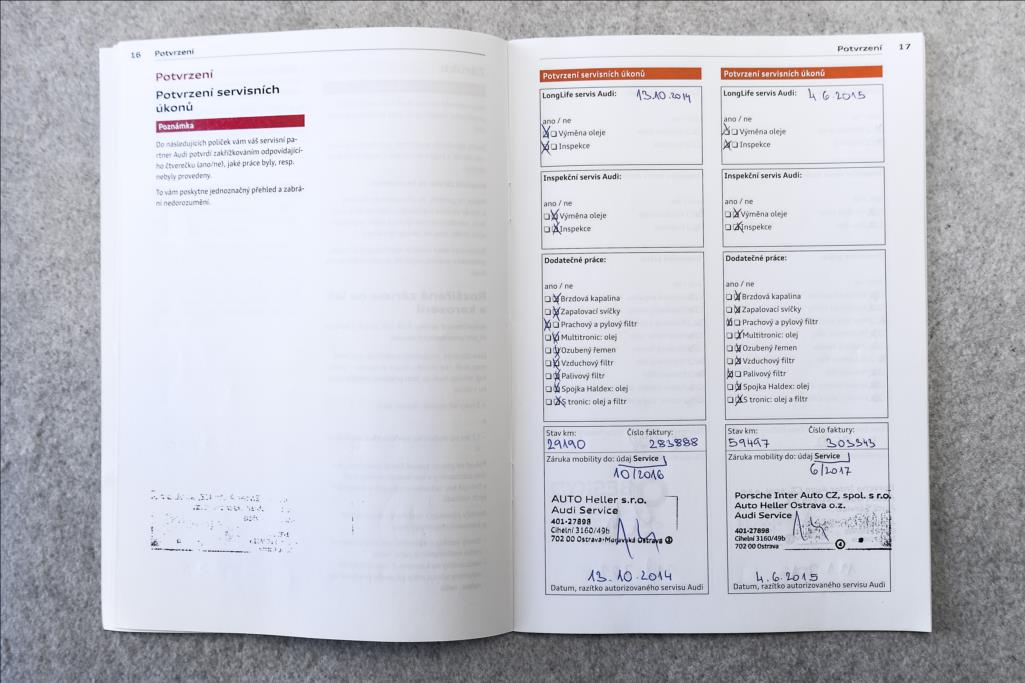 16 Potvrzení
Potvrzení
Potvrzení servisních
úkonů
Poznámka
Do následujících políček vám váš servisní pa-
rtner Audi potvrdí zakřížkováním odpovídající-
ho čtverečku (ano/ne), jaké práce byly, resp.
nebyly provedeny.
To vám poskytne jednoznačný přehled a zabrá-
ní nedorozumění.
Potvrzení 17
Potvrzení servisních úkonů
LongLife servis Audi: 13.10.2014
ano / ne
Výměna oleje
Inspekce
Inspekční servis Audi:
ano / ne
Výměna oleje
Inspekce
Dodatečné práce:
ano / ne
Brzdová kapalina
Zapalovací svíčky
Prachový a pylový filtr
Multitronic: olej
Ozubený řemen
Vzduchový filtr
Palivový filtr
Spojka Haldex: olej
S tronic: olej a filtr
Stav km: Číslo faktury:
29190 283888
Záruka mobility do: údaj Service
10/2016
AUTO Heller s.r.o.
Audi Service
401-27898
Cihelní 3160/49b
702 00 Ostrava-Moravská Ostrava 3
13.10.2014
Datum, razítko autorizovaného servisu Audi
Potvrzení servisních úkonů
LongLife servis Audi: 4.6.2015
ano / ne
Výměna oleje
Inspekce
Inspekční servis Audi:
ano / ne
Výměna oleje
Inspekce
Dodatečné práce:
ano / ne
Brzdová kapalina
Zapalovací svíčky
Prachový a pylový filtr
Multitronic: olej
Ozubený řemen
Vzduchový filtr
Palivový filtr
Spojka Haldex: olej
S tronic: olej a filtr
Stav km: Číslo faktury:
59497 303343
Záruka mobility do: údaj Service
6/2017
Porsche Inter Auto CZ, spol. s r.o.
Auto Heller Ostrava o.z.
Audi Service
401-27898
Cihelní 3160/49b
702 00 Ostrava
4.6.2015
Datum, razítko autorizovaného servisu Audi